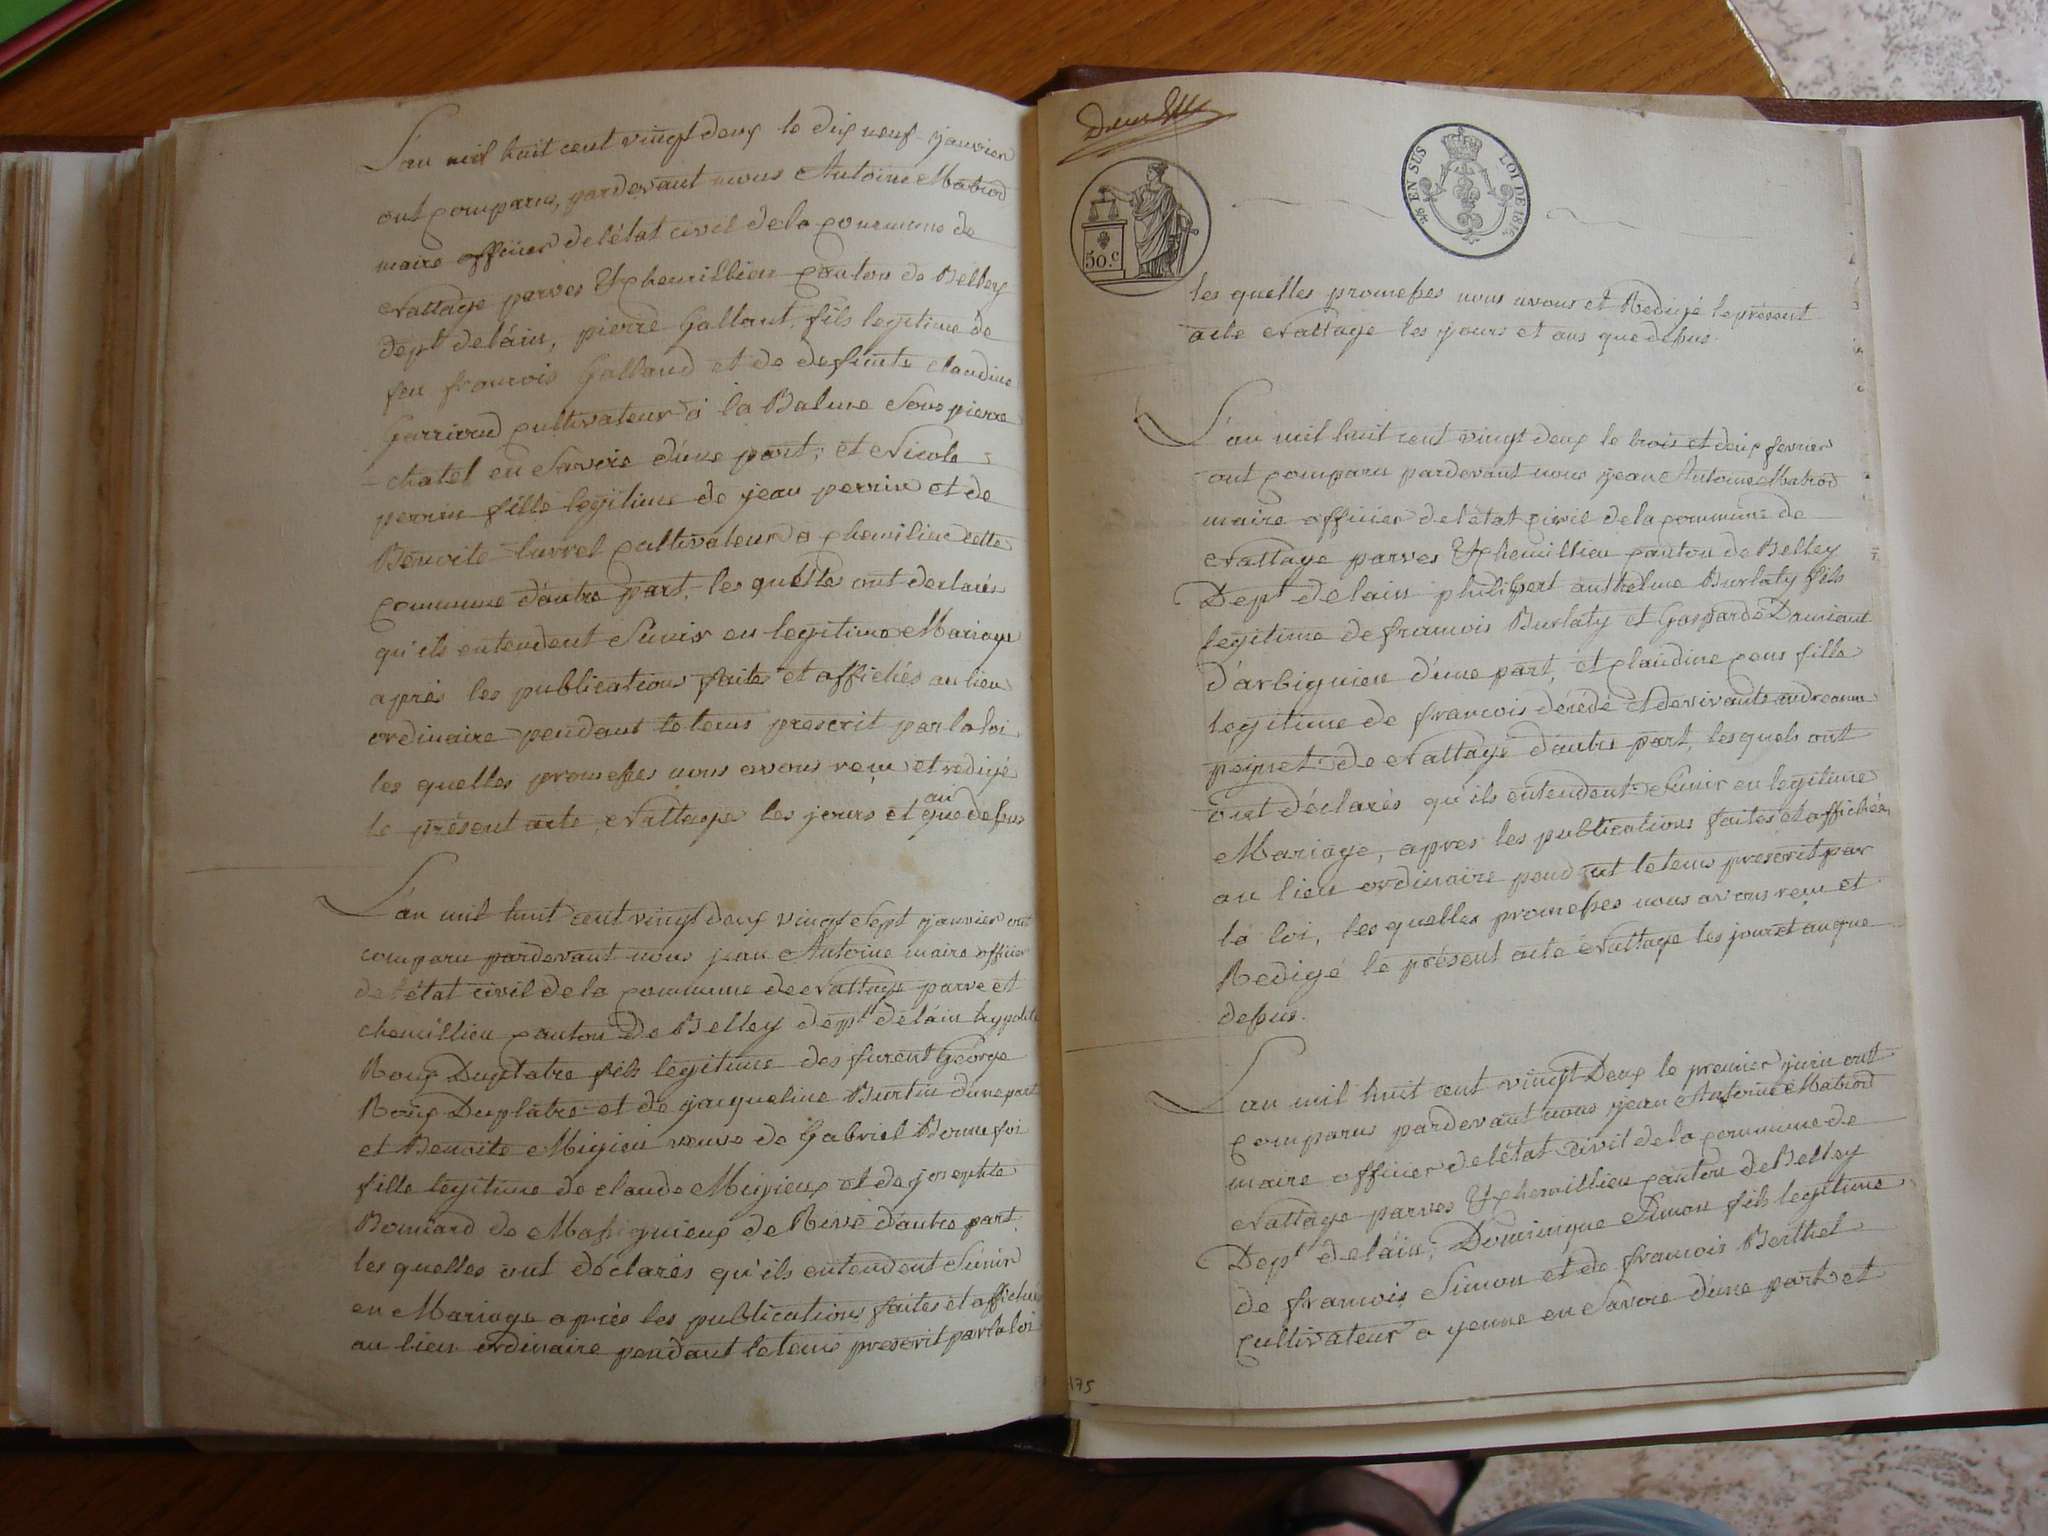 L'an mil huit cent vingt deux le dix neuf janvier
ont comparus, pardevant nous Antoine Mabiod
maire officier de l'état civil de la commune de
Nattage parves & chemillieu canton de Belley
Dept de l'áin, pierre Gallant, fils legitime de
feu francois Galland et de defunte claudine
cultivateur à la Balme Sous pierre
- chatel en Savoie d'une part; et Nicole
perrin fille legitime de jean perrin et de
Benoite cultivateur a chemilieu cette
commune d'autre part, les quelles ont declarés
qu'ils entendent S'unir en legitime Mariage
aprés les publications faites et affichés au lieu
ordinaire pendant le tems prescrit par la loi
les quelles promesses nous avons reçu et redigé
le présent acte Nattage les jours et an que dessus
L'an mil huit cent vingt deux vingt Sept janvier ont
comparu pardevant nous jean Antoine maire officier
de l'état civil de la commune de Nattage parve et
chemillieu canton De Belley dept de láin hypolite
Roux Duplatre fils legitime des furent George
Roux Duplâtre et de jacqueline Burtin d'une part
et Benoite Migieu veuve de Gabriel Bonnefoi
fille legitime de claude Migieux et de josephte
de Massignieux de Rive d'autre part
les quelles ont déclarés qu'ils entendent S'unir
en Mariage aprés les publications faites et affichés
au lieu ordinaire pendant le tems prescrit par la loi
50.c
EN SUS LOI DE 1816.
les quelles promesses nous avons et Redigé le présent
acte Nattage les jours et ans que dessus.
L'an mil huit cent vingt deux le trois et deux fevrier
ont comparu pardevant nous jean Antoine Mabiod
maire officier de l'état civil de la commune de
Nattage parves & chemillieu canton de Belley
Dept de lain philibert anthelme Burlaty fils
legitime de francois Burlaty et Gasparde
d'arbignieu d'une part, et claudine pons fille
legitime de francois décédé et de vivante
peysset de Nattage d'autre part, lesquels ont
ont déclarés qu'ils entendent S'unir en legitime
Mariage, apres les publications faites et affichées
au lieu ordinaire pendant le tems prescrit par
la loi, les quelles promesses nous avons reçu et
Redigé le présent acte Nattage les jour et an que
dessus.
L'an mil huit cent vingt Deux le premier juin ont
comparus pardevant nous jean Antoine Mabiod
maire officier de l'état civil de la commune de
Nattage parves & chemillieu canton de Belley
Dept de láin, Dominique Simon fils legitime
de francois Simon et de francois Berthet
cultivateur a yenne en Savoie d'une part et
175